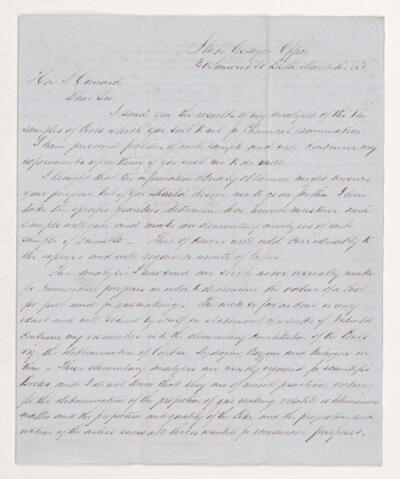 State Assayer's Office
21 Somerset St. Boston March
Hon. S. Conard
Dear Sir
I send you the results of my analysis of the ten
samples of Coals which you sent to me for Chemical examination
I have preserved portions of each sample and will continue my
experiments upon them if you wish me to do more.
I thought that the information already obtained might answer
your purpose but if you should desire me to go further I can
take the specific gravities determine how much moisture each
sample will and make an elementary analysis of each
sample if desirable. This of course will add considerably to
the expense and will require a month of labor.
The Analyses I now send are such as are usually made
for Commercial purposes in order to determine the value of a Coal
for fuel and for gas making. The work so far as done is very
exact and will stand by itself as a statement of results if I should
continue my researches into the elementary constitution of the Coals
viz. the determination of Carbon, Hydrogen Oxygen and Nitrogen in
them. These elementary analyses are mostly required for scientific
Books and I do not know that they are of much practical value,
for the determination of the proportion of gas making volatile or bituminous
matter and the proportion and quality of the Coke and the proportion and
nature of the ashes seems all that is wanted for commercial purposes.